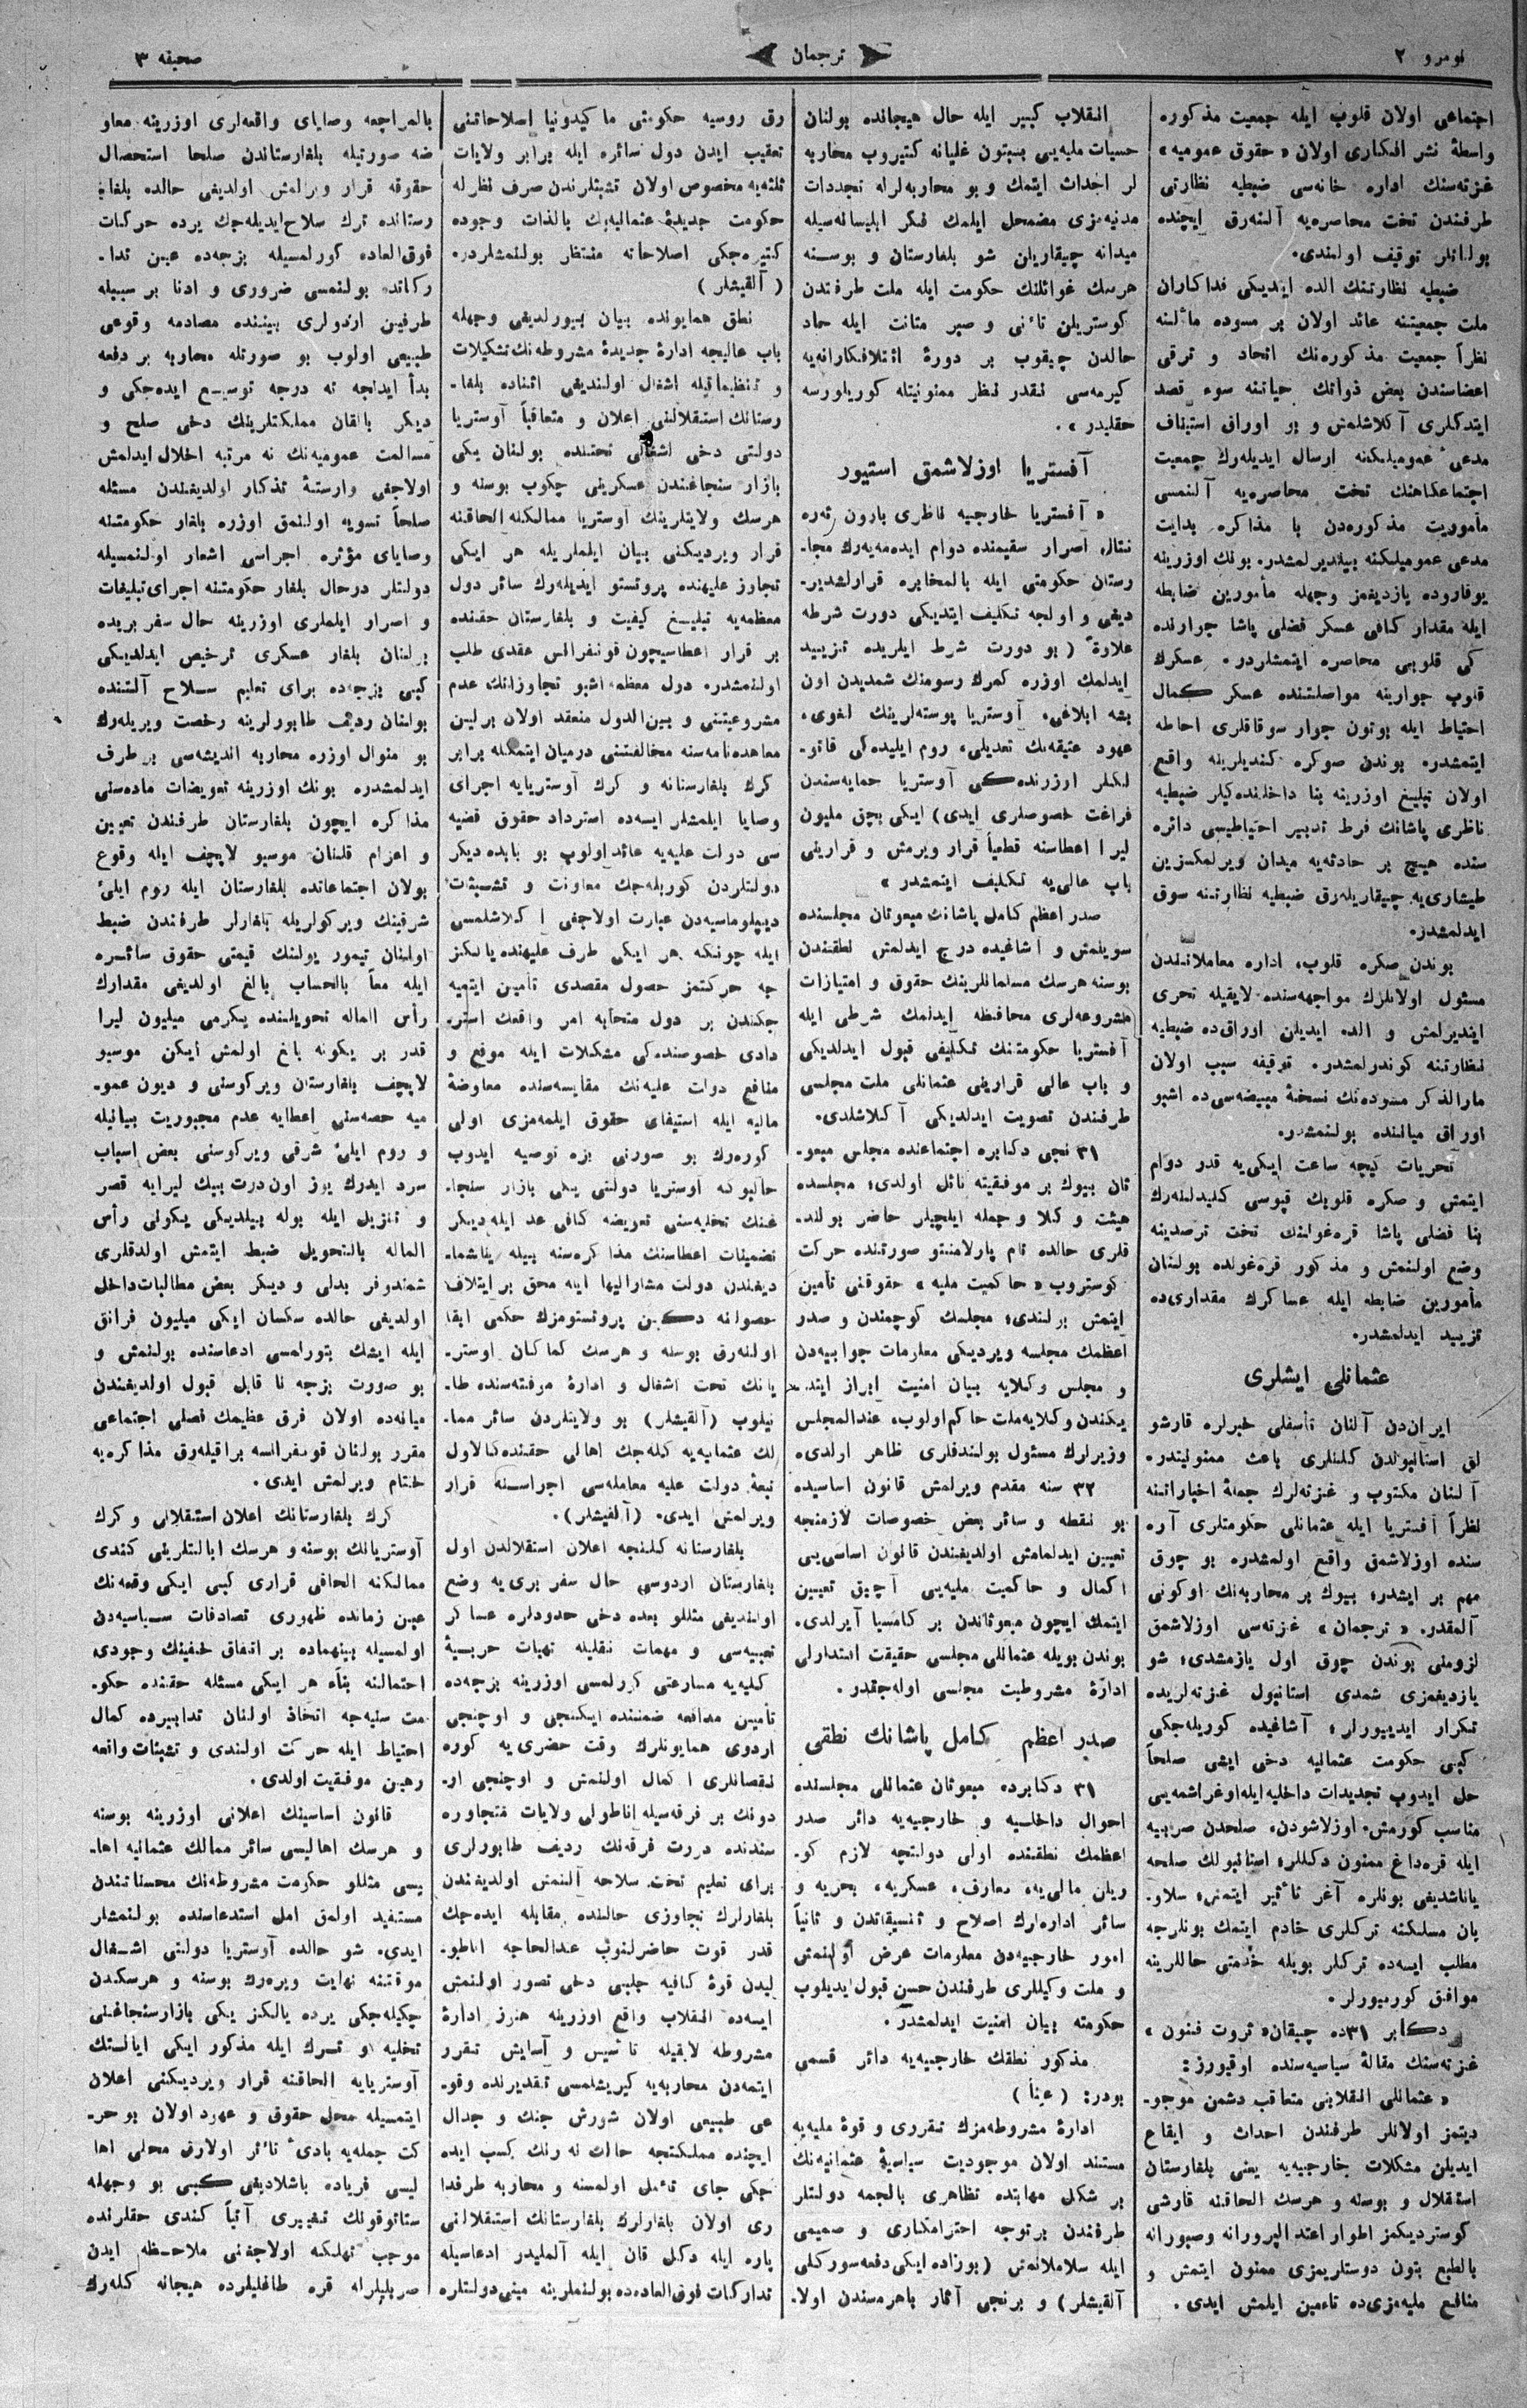 نومرو ۲
ترجمان
صحیفه ۳
اجتماعی اولان قلوب ایله جمعیت مذکوره
واسطهٔ نشر افکاری اولان « حقوق عمومیه »
غزته‌سنك اداره خانه‌سی ضبطیه نظارتی
طرفندن تحت محاصره‌یه آلنه‌رق ایچنده
بولنانلر توقیف اولندی.
ضبطیه نظارتنك الده ایتدیکی فداکاران
ملت جمعیتنه عائد اولان بر مسوده مألنه
نظراً جمعیت مذکوره‌نك اتحاد و ترقی
اعضاسندن بعض ذواتك حیاتنه سوء قصد
ایتدکلری آکلاشلمش و بو اوراق استیناف
مدعیٔ عمومیلکنه ارسال ایدیله‌رك جمعیت
اجتماعکاهنك تحت محاصره‌یه آلنمسی
مأموریت مذکوره‌دن با مذاکره بدایت
مدعی عمومیلکنه بیلدیرلمشدر. بونك اوزرینه
یوقاروده یازدیغمز وجهله مأمورین ضابطه
ایله مقدار کافی عسکر فضلی پاشا جوارنده
کی قلوبی محاصره ایتمشلردر. عسکرك
قلوب جوارینه مواصلتنده عسکر کمال
احتیاط ایله بوتون جوار سوقاقلری احاطه
ایتمشدر. بوندن صوکره کندیلرینه واقع
اولان تبلیغ اوزرینه بنا داخلنده‌کیلر ضبطیه
ناظری پاشانك فرط تدبیر احتیاطیسی دائره
سنده هیچ بر حادثه‌یه میدان ویرلمکسزین
طیشاری‌یه چیقاریله‌رق ضبطیه نظارتنه سوق
ایدلمشدر.
بوندن صکره قلوب، اداره معاملاتندن
مسئول اولانلرك مواجهه‌سنده لایقیله تحری
ایتدیرلمش و الده ایدیلن اوراق‌ده ضبطیه
نظارتنه کوندرلمشدر. توقیفه سبب اولان
مارالذکر مسوده‌نك نسخهٔ مبیضه‌سی‌ده اشبو
اوراق میاننده بولنمشدر.
تحریات کیچه ساعت ایکی‌یه قدر دوام
ایتمش و صکره قلوبك قپوسی کلیدلنه‌رك
بنا فضلی پاشا قره‌غولنك تحت ترصدینه
وضع اولنمش و مذکور قره‌غولده بولنان
مأمورین ضابطه ایله عساکرك مقداری‌ده
تزیید ایدلمشدر.
عثمانلی ایشلری
ایران‌دن آلنان تأسفلی خبرلره قارشو
لق استانبولدن کلنلری باعث ممنونیتدر.
آلنان مکتوب و غزته‌لرك جملهٔ اخباراتنه
نظراً آفستریا ایله عثمانلی حکومتلری آره
سنده اوزلاشمق واقع اولمشدر. بو چوق
مهم بر ایشدر؛ بیوك بر محاربه‌نك اوکونی
آلمقدر. « ترجمان » غزته‌سی اوزلاشمق
لزومنی بوندن چوق اول یازمشدی؛ شو
یازدیغمزی شمدی استانبول غزته‌لریده
تکرار ایدییورلر؛ آشاغیده کوریله‌جکی
کبی حکومت عثمانیه دخی ایشی صلحاً
حل ایدوب تجدیدات داخلیه ایله اوغراشمه‌یی
مناسب کورمش. اوزلاشودن، صلحدن صربیه
ایله قره‌داغ ممنون دکللر؛ استانبولك صلحه
یاناشدیغی بونلره آغر تأثیر ایتمش؛ سلاو-
یان مسلکنه ترکلری خادم ایتمك بونلرجه
مطلب ایسه‌ده ترکلر بویله خدمتی حاللرینه
موافق کورمیورلر.
دکابر ۳۱ده چیقان « ثروت فنون »
غزته‌سنك مقالهٔ سیاسیه‌سنده اوقیورز:
« عثمانلی انقلابنی متعاقب دشمن موجو-
دیتمز اولانلر طرفندن احداث و ایقاع
ایدیلن مشکلات خارجیه‌یه یعنی بلغارستان
استقلال و بوسنه و هرسك الحاقنه قارشی
کوستردیکمز اطوار اعتدالپرورانه و صبورانه
بالطبع بتون دوستلریمزی ممنون ایتمش و
منافع ملیه‌مزی‌ده تأمین ایلمش ایدی.
انقلاب کبیر ایله حال هیجانده بولنان
حسیات ملیه‌یی ببتون غلیانه کتیروب محاربه
لر احداث ایتمك و بو محاربه‌لرله تجددات
مدنیه‌مزی مضمحل ایلمك فکر ابلیسانه‌سیله
میدانه چیقاریلن شو بلغارستان و بوسنه
هرسك غوائلنك حکومت ایله ملت طرفندن
کوستریلن تأنی و صبر متانت ایله حاد
حالدن چیقوب بر دورهٔ ائتلافکارانه‌یه
کیرمه‌سی نقدر نظر ممنونیتله کوریلورسه
حقلیدر ».
آفستریا اوزلاشمق استیور
« آفستریا خارجیه ناظری بارون ئه‌ره
نتال، اصرار سقیمنده دوام ایده‌مه‌یه‌رك مجا-
رستان حکومتی ایله بالمخابره قرارلشدیر-
دیغی و اولجه تکلیف ایتدیکی دورت شرطه
علاوهً ( بو دورت شرط ایلریده تزیید
ایدلمك اوزره کمرك رسومنك شمدیدن اون
بشه ابلاغی، آوستریا پوسته‌لرینك لغوی،
عهود عتیقه‌نك تعدیلی، روم ایلیده‌کی قاتو-
لکلر اوزرنده‌کی آوستریا حمایه‌سندن
فراغت خصوصلری ایدی ) ایکی بچق ملیون
لیرا اعطاسنه قطعیاً قرار ویرمش و قرارینی
باب عالی‌یه تکلیف ایتمشدر »
صدر اعظم کامل پاشانك مبعوثان مجلسنده
سویلمش و آشاغیده درج ایدلمش نطقندن
بوسنه هرسك مسلمانلرینك حقوق و امتیازات
مشروعه‌لری محافظه ایدلمك شرطی ایله
آفستریا حکومتنك تکلیفی قبول ایدلدیکی
و باب عالی قرارینی عثمانلی ملت مجلسی
طرفندن تصویت ایدلدیکی آکلاشلدی.
۳۱ نجی دکابره اجتماعنده مجلس مبعو-
ثان بیوك بر موفقیته نائل اولدی؛ مجلسده
هیئت وکلا و جمله ایلچیلر حاضر بولند-
قلری حالده تام پارلامنتو صورتنده حرکت
کوستروب « حاکمیت ملیه » حقوقنی تأمین
ایتمش بولندی؛ مجلسك کوچندن و صدر
اعظمك مجلسه ویردیکی معلومات جوابیه‌دن
و مجلس وکلایه بیان امنیت ابراز ایتد-
یکندن وکلایه ملت حاکم اولوب، عندالمجلس
وزیرلرك مسئول بولندقلری ظاهر اولدی.
۳۲ سنه مقدم ویرلمش قانون اساسیده
بو نقطه و سائر بعض خصوصات لازمنجه
تعیین ایدلمامش اولدیغندن قانون اساسی‌یی
اکمال و حاکمیت ملیه‌یی آچیق تعیین
ایتمك ایچون مبعوثاندن بر کامسیا آیرلدی.
بوندن بویله عثمانلی مجلسی حقیقت اقتدارلی
ادارهٔ مشروطیت مجلسی اوله‌جقدر.
صدر اعظم کامل پاشانك نطقی
۳۱ دکابرده مبعوثان عثمانلی مجلسنده
احوال داخلیه و خارجیه‌یه دائر صدر
اعظمك نطقنده اولی دولتچه لازم کو-
ریلن مالیه، معارف، عسکریه، بحریه و
سائر اداره‌لرك اصلاح و تنسیقاتدن و ثانیاً
امور خارجیه‌دن معلومات عرض اولنمش
و ملت وکیللری طرفندن حسن قبول ایدیلوب
حکومته بیان امنیت ایدلمشدر.
مذکور نطقك خارجیه‌یه دائر قسمی
بودر: ( عیناً )
ادارهٔ مشروطه‌مزك تقرری و قوهٔ ملیه‌یه
مستند اولان موجودیت سیاسیهٔ عثمانیه‌نك
بر شکل مهابتده تظاهری بالجمله دولتلر
طرفندن بر توجه احترامکاری و صمیمی
ایله سلاملانمش ( بوراده ایکی دفعه سورکلی
آلقیشلر ) و برنجی آثار باهره‌سندن اولا-
رق روسیه حکومتی ماکیدونیا اصلاحاتنی
تعقیب ایدن دول سائره ایله برابر ولایات
ثلثه‌یه مخصوص اولان تشبثلرندن صرف نظرله
حکومت جدیدهٔ عثمانیه‌نك بالذات وجوده
کتیره‌جکی اصلاحاته منتظر بولنمشلردر.
( آلقیشلر )
نطق همایونده بیان بیورلدیغی وجهله
باب عالیجه ادارهٔ جدیدهٔ مشروطه‌نك تشکیلات
و تنظیماتیله اشغال اولندیغی اثناده بلغا-
رستانك استقلالنی اعلان و متعاقباً آوستریا
دولتی دخی اشغالی تحتنده بولنان یکی
بازار سنجاغندن عسکرینی چکوب بوسنه و
هرسك ولایتلرینك آوستریا ممالکنه الحاقنه
قرار ویردیکنی بیان ایلملریله هر ایکی
تجاوز علیهنده پروتستو ایدیله‌رك سائر دول
معظمه‌یه تبلیغ کیفیت و بلغارستان حقنده
بر قرار اعطاسیچون قونفرانس عقدی طلب
اولنمشدر. دول معظمه اشبو تجاوزاتك عدم
مشروعیتنی و بین‌الدول منعقد اولان برلین
معاهده‌نامه‌سنه مخالفتنی درمیان ایتمکله برابر
کرك بلغارستانه و کرك آوستریایه اجرای
وصایا ایلمشلر ایسه‌ده استرداد حقوق قضیه
سی دولت علیه‌یه عائد اولوب بو بابده دیکر
دولتلردن کوریله‌جك معاونت و تشبثات
دیپلوماسیه‌دن عبارت اولاجغی آکلاشلمسی
ایله چونکه هر ایکی طرف علیهنده یالکز
جه حرکتمز حصول مقصدی تأمین ایتمیه
جکندن بر دول متحابه امر واقعك استر-
دادی خصوصنده‌کی مشکلات ایله موقع و
منافع دولت علیه‌نك مقایسه‌سنده معاوضهٔ
مالیه ایله استیفای حقوق ایلمه‌مزی اولی
کوره‌رك بو صورتی بزه توصیه ایدوب
حالبوکه آوستریا دولتی یکی بازار سنجا-
غنك تخلیه‌سنی تعویضه کافی عد ایله دیکر
تضمینات اعطاسنك مذاکره‌سنه بیله یناشما-
دیغندن دولت مشارالیها ایله محق بر ایتلاف
حصولنه دکین پروتستومزك حکمی ابقا
اولنه‌رق بوسنه و هرسك کماکان اوستر-
یانك تحت اشغال و ادارهٔ موقته‌سنده طا-
نیلوب ( آلقیشلر ) بو ولایتلردن سائر مما-
لك عثمانیه‌یه کله‌جك اهالی حقنده کالاول
تبعهٔ دولت علیه معامله‌سی اجراسنه قرار
ویرلمش ایدی. ( آلقیشلر ).
بلغارستانه کلنجه اعلان استقلالدن اول
بلغارستان اردوسی حال سفربری‌یه وضع
اولندیغی مثللو بعده دخی حدودلره عساکر
تعبیه‌سی و مهمات نقلیله تهیات حربیهٔ
کلیه‌یه مسارعتی کورلمسی اوزرینه بزجه‌ده
تأمین مدافعه ضمننده ایکنجی و اوچنجی
اردوی همایونلرك وقت حضری‌یه کوره
نقصانلری اکمال اولنمش و اوچنجی ار-
دونك بر فرقه‌سیله اناطولی ولایات متجاوره
سندنده درت فرقه‌نك ردیف طابورلری
برای تعلیم تحت سلاحه آلنمش اولدیغندن
بلغارلرك تجاوزی حالنده مقابله ایده‌جك
قدر قوت حاضرلنوب عندالحاجه اناطو-
لیدن قوهٔ کافیه جلبی دخی تصور اولنمش
ایسه‌ده انقلاب واقع اوزرینه هنوز ادارهٔ
مشروطه لایقیله تأسیس و آسایش تقرر
ایتمه‌دن محاربه‌یه کیریشلمسی تقدیرنده وقو-
عی طبیعی اولان شورش جنك و جدال
ایچنده مملکتجه حالك نه رنك کسب ایده
جکی جای تأمل اولمسنه و محاربه طرفدا
ری اولان بلغارلرك بلغارستانك استقلالنی
پاره ایله دکل قان ایله آلملیدر ادعاسیله
تدارکات فوق‌العاده‌ده بولنملرینه مبنی دولتلره
بالمراجعه وصایای واقعه‌لری اوزرینه معاو
ضه صورتیله بلغارستاندن صلحاً استحصال
حقوقه قرار ویرلمش اولدیغی حالده بلغا
رستانده ترك سلاح ایدیله‌جك یرده حرکات
فوق‌العاده کورلمسیله بزجه‌ده عین تدا-
رکاتده بولنمسی ضروری و ادنا بر سببیله
طرفین اردولری بیننده مصادمه وقوعی
طبیعی اولوب بو صورتله محاربه بر دفعه
بدأ ایدلجه نه درجه توسیع ایده‌جکی و
دیکر بالقان مملکتلرینك دخی صلح و
مسالمت عمومیه‌نك نه مرتبه اخلال ایدلمش
اولاجغی وارستهٔ تذکار اولدیغندن مسئله
صلحاً تسویه اولنمق اوزره بلغار حکومتنه
وصایای مؤثره اجراسی اشعار اولنمسیله
دولتلر دوحال بلغار حکومتنه اجرای تبلیغات
و اصرار ایلملری اوزرینه حال سفربریده
بولنان بلغار عسکری ترخیص ایدلدیکی
کبی بزجه‌ده برای تعلیم سلاح آلتنده
بولنان ردیف طابورلرینه رخصت ویریله‌رك
بو منوال اوزره محاربه اندیشه‌سی بر طرف
ایدلمشدر. بونك اوزرینه تعویضات ماده‌سنی
مذاکره ایچون بلغارستان طرفندن تعیین
و اعزام قلنان موسیو لاپچف ایله وقوع
بولان اجتماعاتده بلغارستان ایله روم ایلیٔ
شرقینك ویرکولریله بلغارلر طرفندن ضبط
اولنان تیمور یولنك قیمتی حقوق سائره
ایله معاً بالحساب بالغ اولدیغی مقدارك
رأس الماله تحویلنده یکرمی میلیون لیرا
قدر بر یکونه بالغ اولمش ایکن موسیو
لاپچف بلغارستان ویرکوسنی و دیون عمو-
میه حصه‌سنی اعطایه عدم مجبوریت بیانیله
و روم ایلیٔ شرقی ویرکوسنی بعض اسباب
سرد ایدرك یوز اون درت بیك لیرایه قصر
و تنزیل ایله بوله بیلدیکی یکونی رأس
الماله بالتحویل ضبط ایتمش اولدقلری
شمندوفر بدلی و دیکر بعض مطالبات داخل
اولدیغی حالده سکسان ایکی میلیون فرانق
ایله ایشك بتورلمسی ادعاسنده بولنمش و
بو صورت بزجه نا قابل قبول اولدیغندن
میانه‌ده اولان فرق عظیمك فصلی اجتماعی
مقرر بولنان قونفرانسه براقیله‌رق مذاکره‌یه
ختام ویرلمش ایدی.
كرك بلغارستانك اعلان استقلالی و کرك
آوستریانك بوسنه و هرسك ایالتلرینی کندی
ممالکنه الحاقی قراری کبی ایکی وقعه‌نك
عین زمانده ظهوری تصادفات سیاسیه‌دن
اولمسیله بینهماده بر اتفاق خفینك وجودی
احتمالنه بناءً هر ایکی مسئله حقنده حکو-
مت سنیه‌جه اتخاذ اولنان تدابیرده کمال
احتیاط ایله حرکت اولندی و تشبثات واقعه
رهین موفقیت اولدی.
قانون اساسینك اعلانی اوزرینه بوسنه
و هرسك اهالیسی سائر ممالك عثمانیه اها-
یسی مثللو حکومت مشروطه‌نك محسناتندن
مستفید اولمق امل استدعاسنده بولنمشلر
ایدی. شو حالده آوستریا دولتی اشغال
موقتنه نهایت ویره‌رك بوسنه و هرسکدن
چکیله‌جکی یرده یالکز یکی بازار سنجاغنی
تخلیه و ترك ایله مذکور ایکی ایالتك
آوستریایه الحاقنه قرار ویردیکنی اعلان
ایتمسیله مخل حقوق و عهود اولان بو حر-
کت جمله‌یه بادیٔ تأثر اولارق محلی اها
لیسی فریاده باشلادیغی کبی بو وجهله
ستاتوقونك تغییری آتیاً کندی حقلرنده
موجب تهلکه اولاجغنی ملاحظه ایدن
صربلیلرله قره طاغلیلرده هیجانه کله‌رك